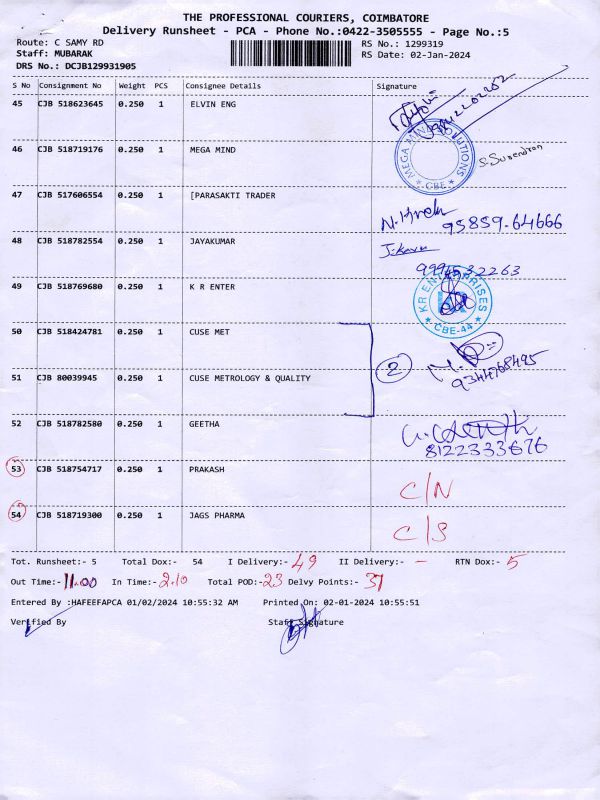 THE PROFESSIONAL COURIERS, COIMBATORE
Delivery Runsheet - PCA - Phone No.:0422-3505555 - Page No.:5
Route: C SAMY RD
RS No.: 1299319
Staff: MUBARAK
RS Date: 02-Jan-2024
DRS No.: DCJB129931905
S No Consignment No Weight PCS Consignee Details Signature
45 CJB 518623645 0.250 1 ELVIN ENG
46 CJB 518719176 0.250 1 MEGA MIND
MEGA MIND SOLUTIONS
* CBE *
S. Surendran
47 CJB 517606554 0.250 1 [PARASAKTI TRADER
95859-64666
48 CJB 518782554 0.250 1 JAYAKUMAR
49 CJB 518769680 0.250 1 K R ENTER
KR ENTERPRISES
* CBE-44 *
50 CJB 518424781 0.250 1 CUSE MET
2
9344768495
51 CJB 80039945 0.250 1 CUSE METROLOGY & QUALITY
52 CJB 518782580 0.250 1 GEETHA
8122333676
53 CJB 518754717 0.250 1 PRAKASH C/N
54 CJB 518719300 0.250 1 JAGS PHARMA C/S
Tot. Runsheet:- 5 Total Dox:- 54 I Delivery:- 49 II Delivery:- - RTN Dox:- 5
Out Time:- 11.00 In Time:- 2.10 Total POD:- 23 Delvy Points:- 31
Entered By :HAFEEFAPCA 01/02/2024 10:55:32 AM Printed On: 02-01-2024 10:55:51
Verified By Staff Signature